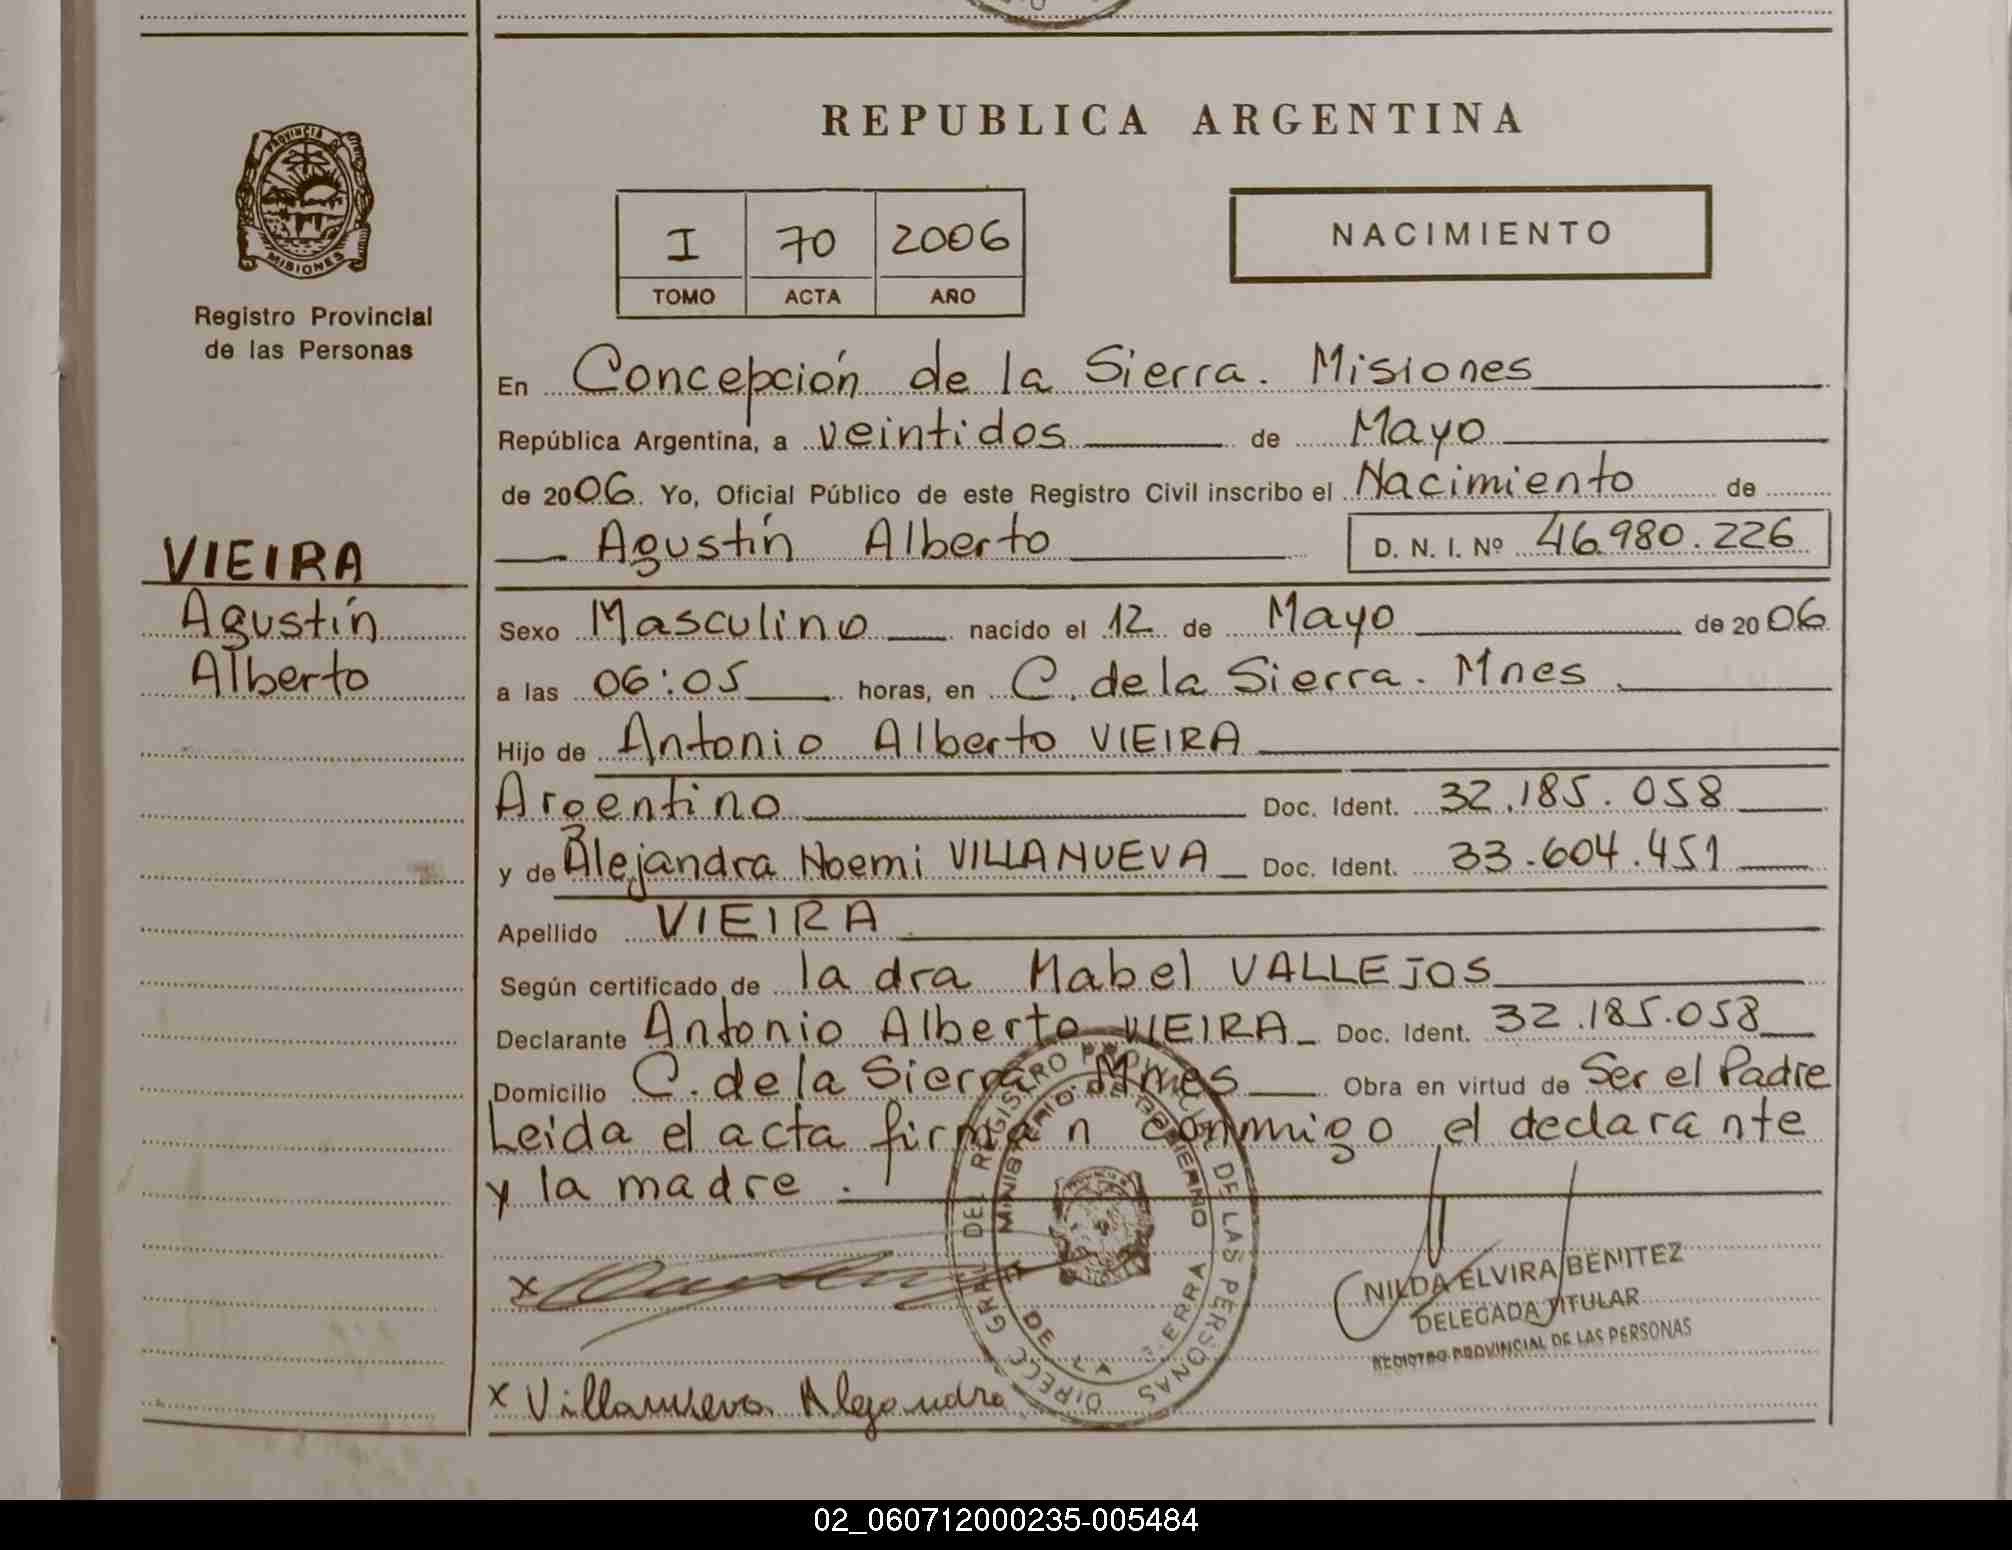 PROVINCIA DE
MISIONES
Registro Provincial
de las Personas
VIEIRA
Agustín
Alberto
REPUBLICA ARGENTINA
I 70 2006
TOMO ACTA AÑO
NACIMIENTO
En Concepción de la Sierra. Misiones
República Argentina, a veintidos de Mayo
de 2006. Yo, Oficial Público de este Registro Civil inscribo el Nacimiento de
Agustín Alberto D. N. I. Nº 46.980.226
Sexo Masculino nacido el 12 de Mayo de 2006
a las 06:05 horas, en C. de la Sierra. Mnes
Hijo de Antonio Alberto VIEIRA
Argentino Doc. Ident. 32.185.058
y de Alejandra Noemi VILLANUEVA Doc. Ident. 33.604.451
Apellido VIEIRA
Según certificado de la dra Mabel VALLEJOS
Declarante Antonio Alberto VIEIRA Doc. Ident. 32.185.058
Domicilio C. de la Sierra Mnes Obra en virtud de Ser el Padre
Leida el acta firman conmigo el declarante
y la madre.
DIRECC. GRAL. DEL REGISTRO PROVINCIAL DE LAS PERSONAS
MINISTERIO DE GOBIERNO
DE LA SIERRA
x
NILDA ELVIRA BENITEZ
DELEGADA TITULAR
REGISTRO PROVINCIAL DE LAS PERSONAS
x Villanueva Alejandra
02_060712000235-005484